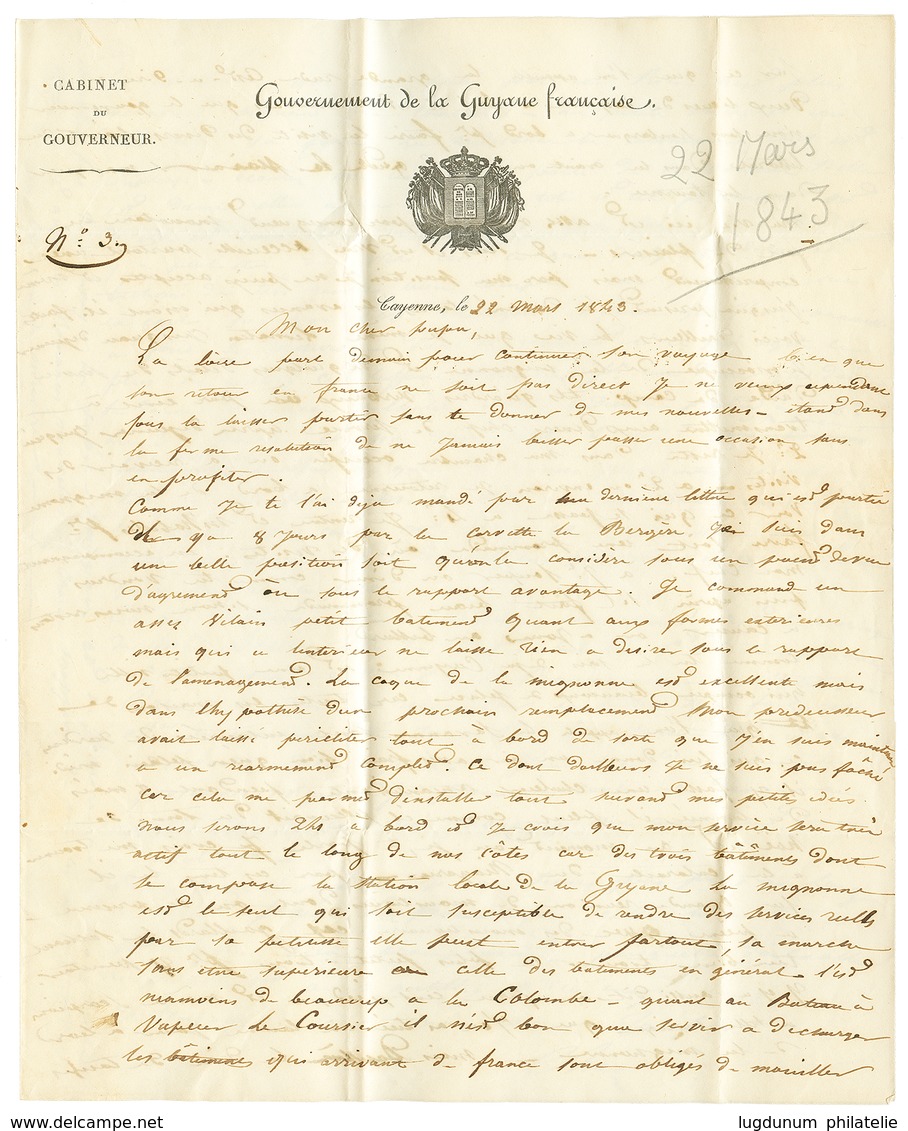 CABINET
DU
GOUVERNEUR.
Gouvernement de la Guyane française.
22 Mars
1843
N.º 3.
Cayenne, le 22 mars 1843.
Mon cher papa,
La loire part demain pour continuer son voyage bien que
son retour en france ne soit pas direct Je ne veux cependant
pas la laisser partir sans te donner de mes nouvelles - étant dans
la ferme resolution de ne Jamais laisser passer une occasion sans
en profiter.
Comme Je te l'ai deja mandé par ma dernière lettre qui est partie
il y a 8 Jours par la corvette la Bergère, Je suis dans
une belle position soit qu'on la considère sous un point de vue
d'agrement ou sous le rapport avantage. Je commande un
assez Vilain petit batiment quant aux formes exterieures
mais qui a l'interieur ne laisse rien a desirer sous le rapport
de l'amenagement. La coque de la mignonne est excellente mais
dans l'hypothèse d'un prochain remplacement mon predecesseur
avait laissé pericliter tout à bord de sorte que J'en suis maintenant
a un rearmement complet. Ce dont d'ailleurs Je ne suis pas fâché
car cela me permet d'installer tout suivant mes petites idées.
nous serons à bord et Je crois que mon service sera très
actif tout le long de nos côtes car des trois bâtiments dont
se compose la station locale de la Guyane la mignonne
est le seul qui soit susceptible de rendre des services réels
par sa petitesse elle peut entrer partout, sa marche
sans etre superieure a celle des batiments en général l'est
neanmoins de beaucoup a la Colombe - quant au Bateau à
Vapeur Le Coursier il n'est bon que servir a decharger
les bâtiments qui arrivant de france sont obligés de mouiller
www.delcampe.net
lugdunum philatelie